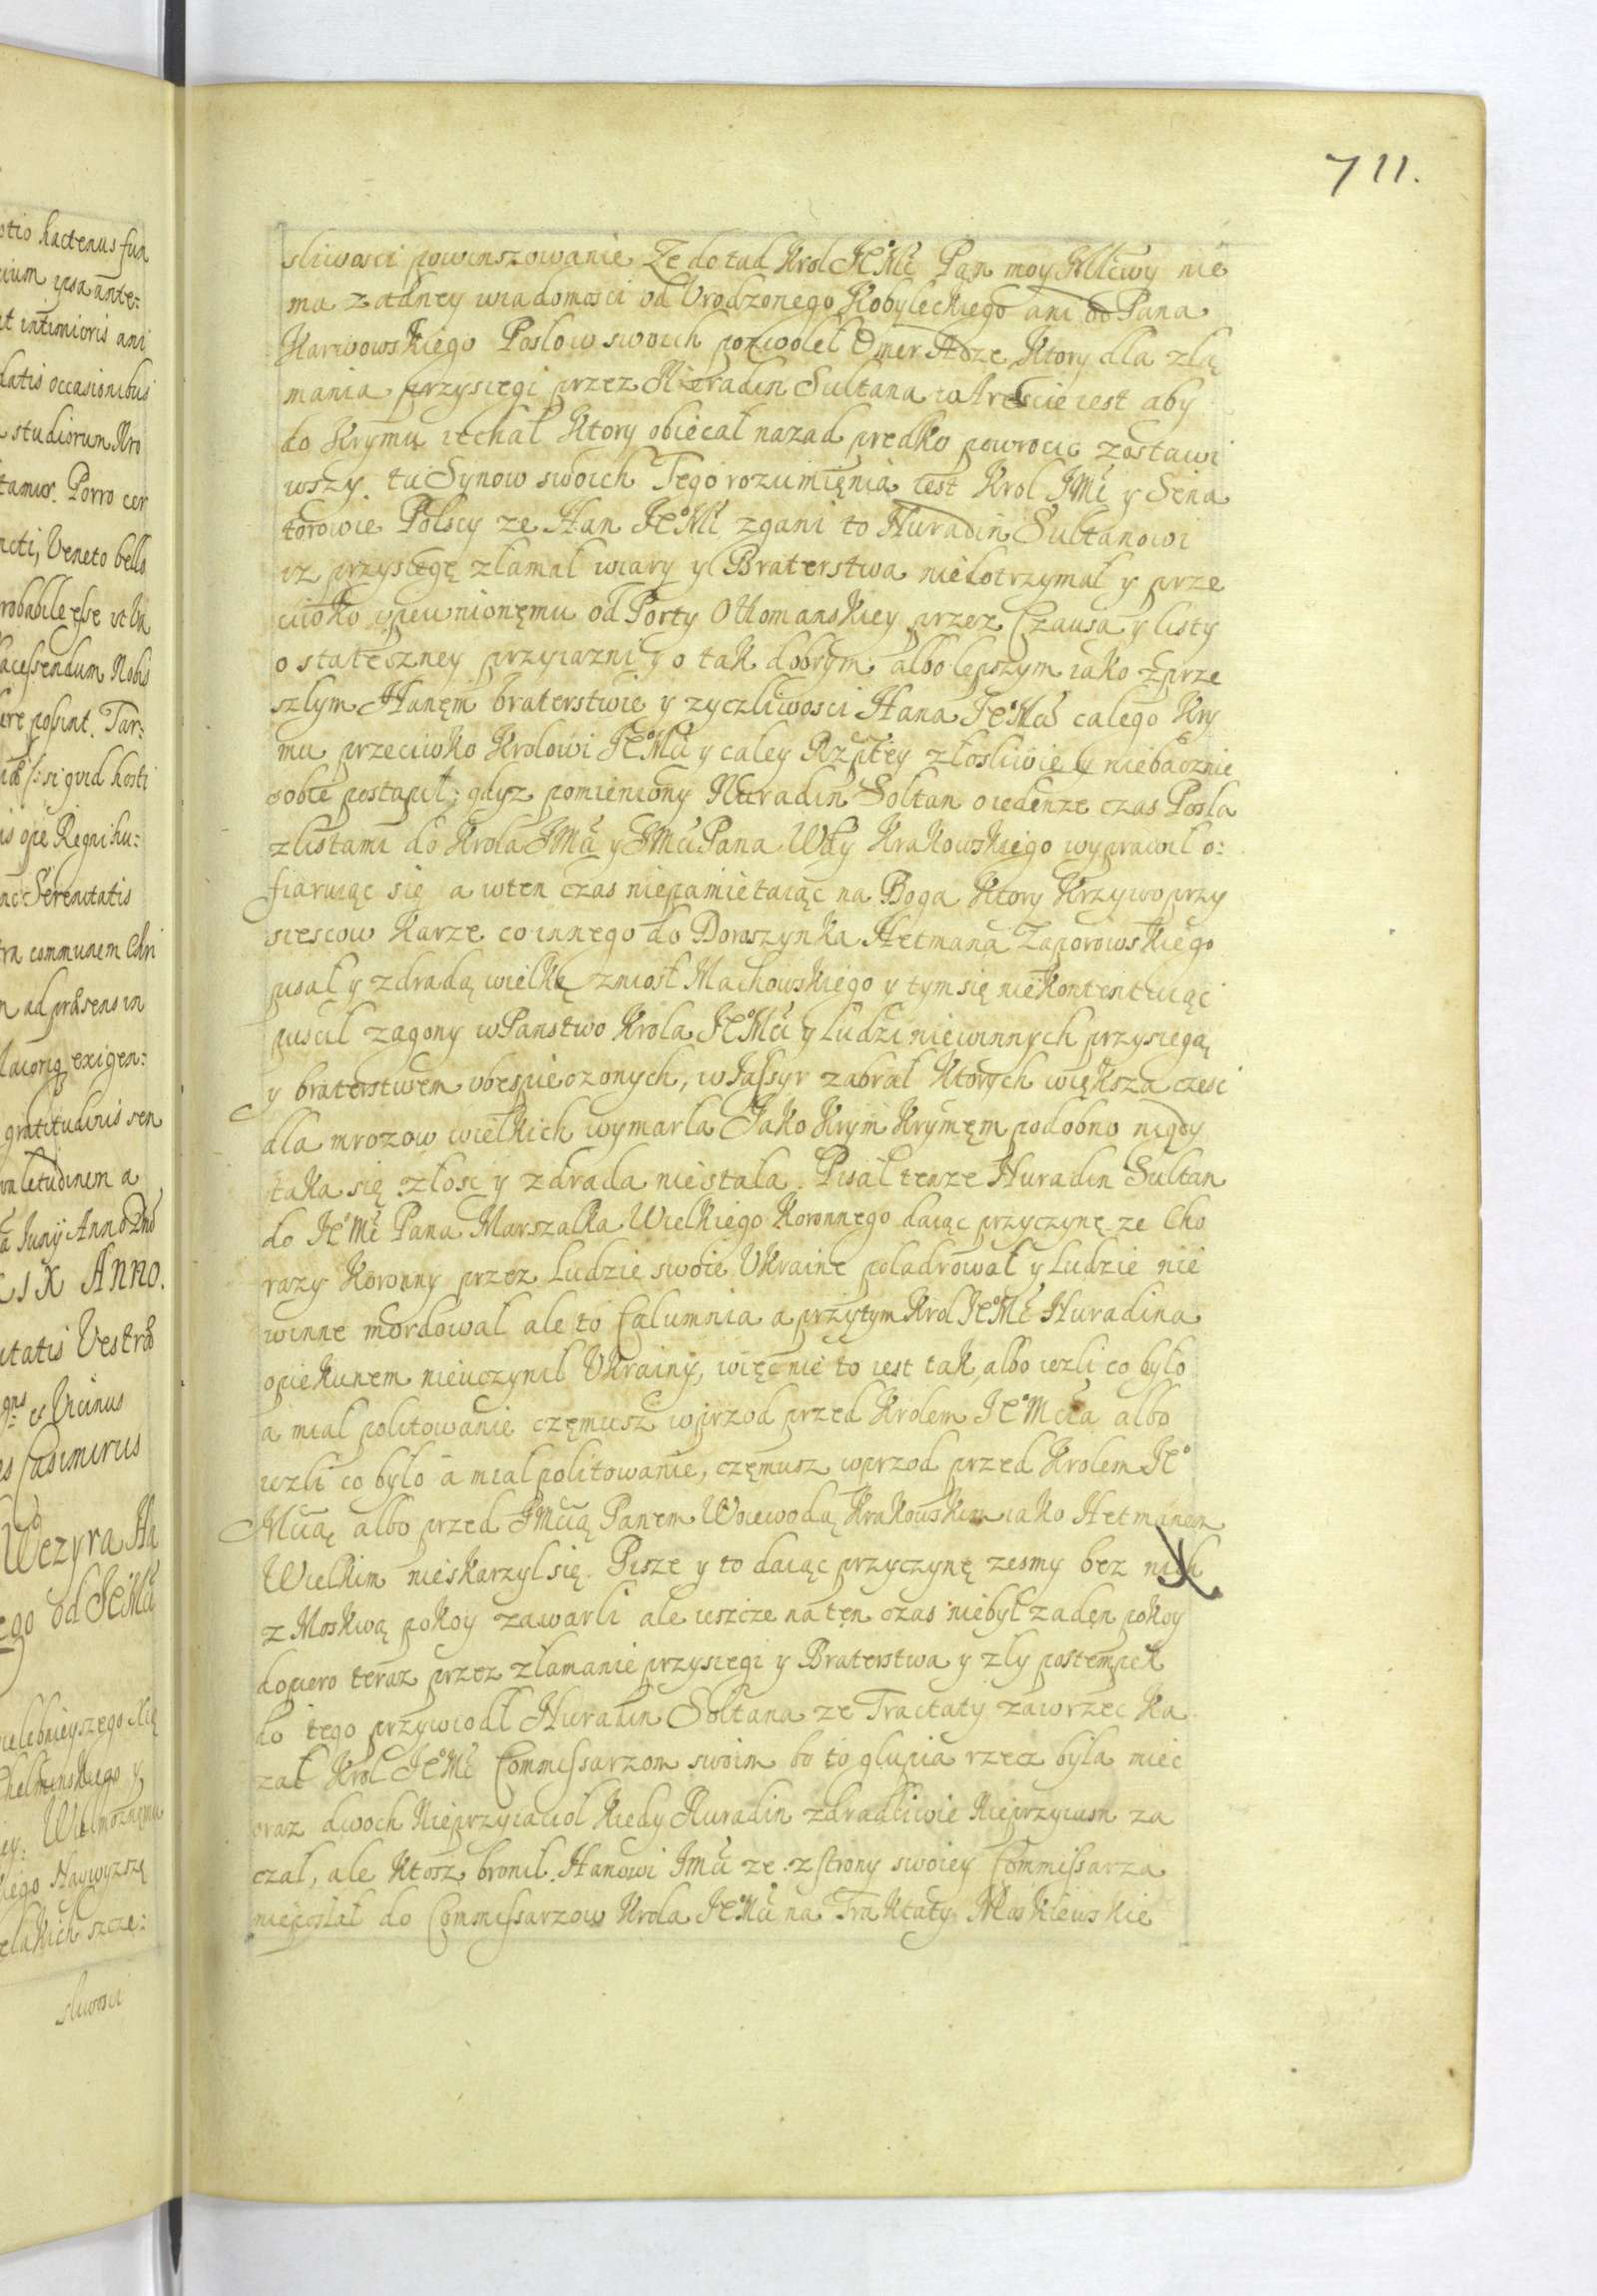 711.
sliwosci powinszowanie Ze do tad Krol JE°Mć Pan moy Młćiwy nie
ma zadney wiadomosci od Vrodzonego Kobyleckiego ani od Pana
Karwowskiego Posłow swoich pozwolel Omer Adze Ktory dla zła
mania przysiegi przez Nuradin Sultana w Areście iest aby
do Krymu iechał Ktory obiecał nazad prędko powrocic zostawi
wszy tu Synow swoich Tego rozumięnia iest Krol JMć y Sena
torowie Polscy ze Han JE°Mć zgani to Nuradin Sultanowi
iz przysiegę złamał wiary y Braterstwa niedotrzymał y prze
ciwko vpewnionęmu od Porty Ottomanskiey przez Czausa y listy
o stateszney przyiazni y o tak dobrym albo lepszym iako z prze
szlym Hanęm braterstwie y zyczliwosci Hana JE°Mći całego Kry
mu przeciwko Krolowi JE°Mći y całey Rzptey złosliwie y niebacznie
sobie postapił; gdyz pomieniony Nuradin Soltan o iedenze czas Posla
z listami do Krola JMći y JMći Pana Wdy Krakowskiego wyprawił o:
fiaruiąc się a w ten czas niepamietaiąc na Boga Ktory Krzywoprzy
siescow Karze co innego do Doroszynka Hetmana Zaporowskiego
pisał y zdradą wielką zniosł Machowskiego y tym się niekontentuiąc
puscil zagony w Panstwo Krola JE°Mći y ludzi niewinnych przysięgą
y braterstwem vbespieczonych, w Jassyr zabrał Ktorych większa czesc
dla mrozow wielkich wymarla Jako Krym Krymęm podobno nigdy
taka się złosc y zdrada niestała. Pisał tenze Nuradin Sultan
do JE°Mć Pana Marszałka Wielkiego Koronnego daiąc przyczynę ze Cho
razy Koronny przez Ludzie swoie Vkraine poladrował y Ludzie nie
winne mordował ale to Calumnia a przytym Krol JE°Mć Nuradina
opiekunem nieuczynił Vkrainy, więc nie to iest tak, albo iezli co było
a miał politowanie częmusz wprzod przed Krolem JE°Mcia albo
iezli co było a miał politowanie, częmusz wprzod przed Krolem JE°
Mcią albo przed JMcią Panem Woiewodą Krakowskim iako Hetmanem
Wielkim nieskarzył się. Pisze y to daiąc przyczynę zesmy bez nich
z Moskwą pokoy zawarli ale ieszcze na tęn czas niebył zadęn pokoy
dopiero teraz przez złamanie przysiegi y Braterstwa y zły postempek
do tego przywiodł Nuradin Soltana ze Tractaty zawrzec ka
zał Krol JE°Mć Commissarzom swoim bo to glupia rzecz była miec
oraz dwoch Nieprzyiaciol kiedy Nuradin zdradliwie Nieprzyiazn za
czał, ale Ktosz bronił Hanowi JMći ze z strony swoiey Commissarza
nieposłał do Commissarzow Krola JE°Mći na Traktaty Moskiewskie